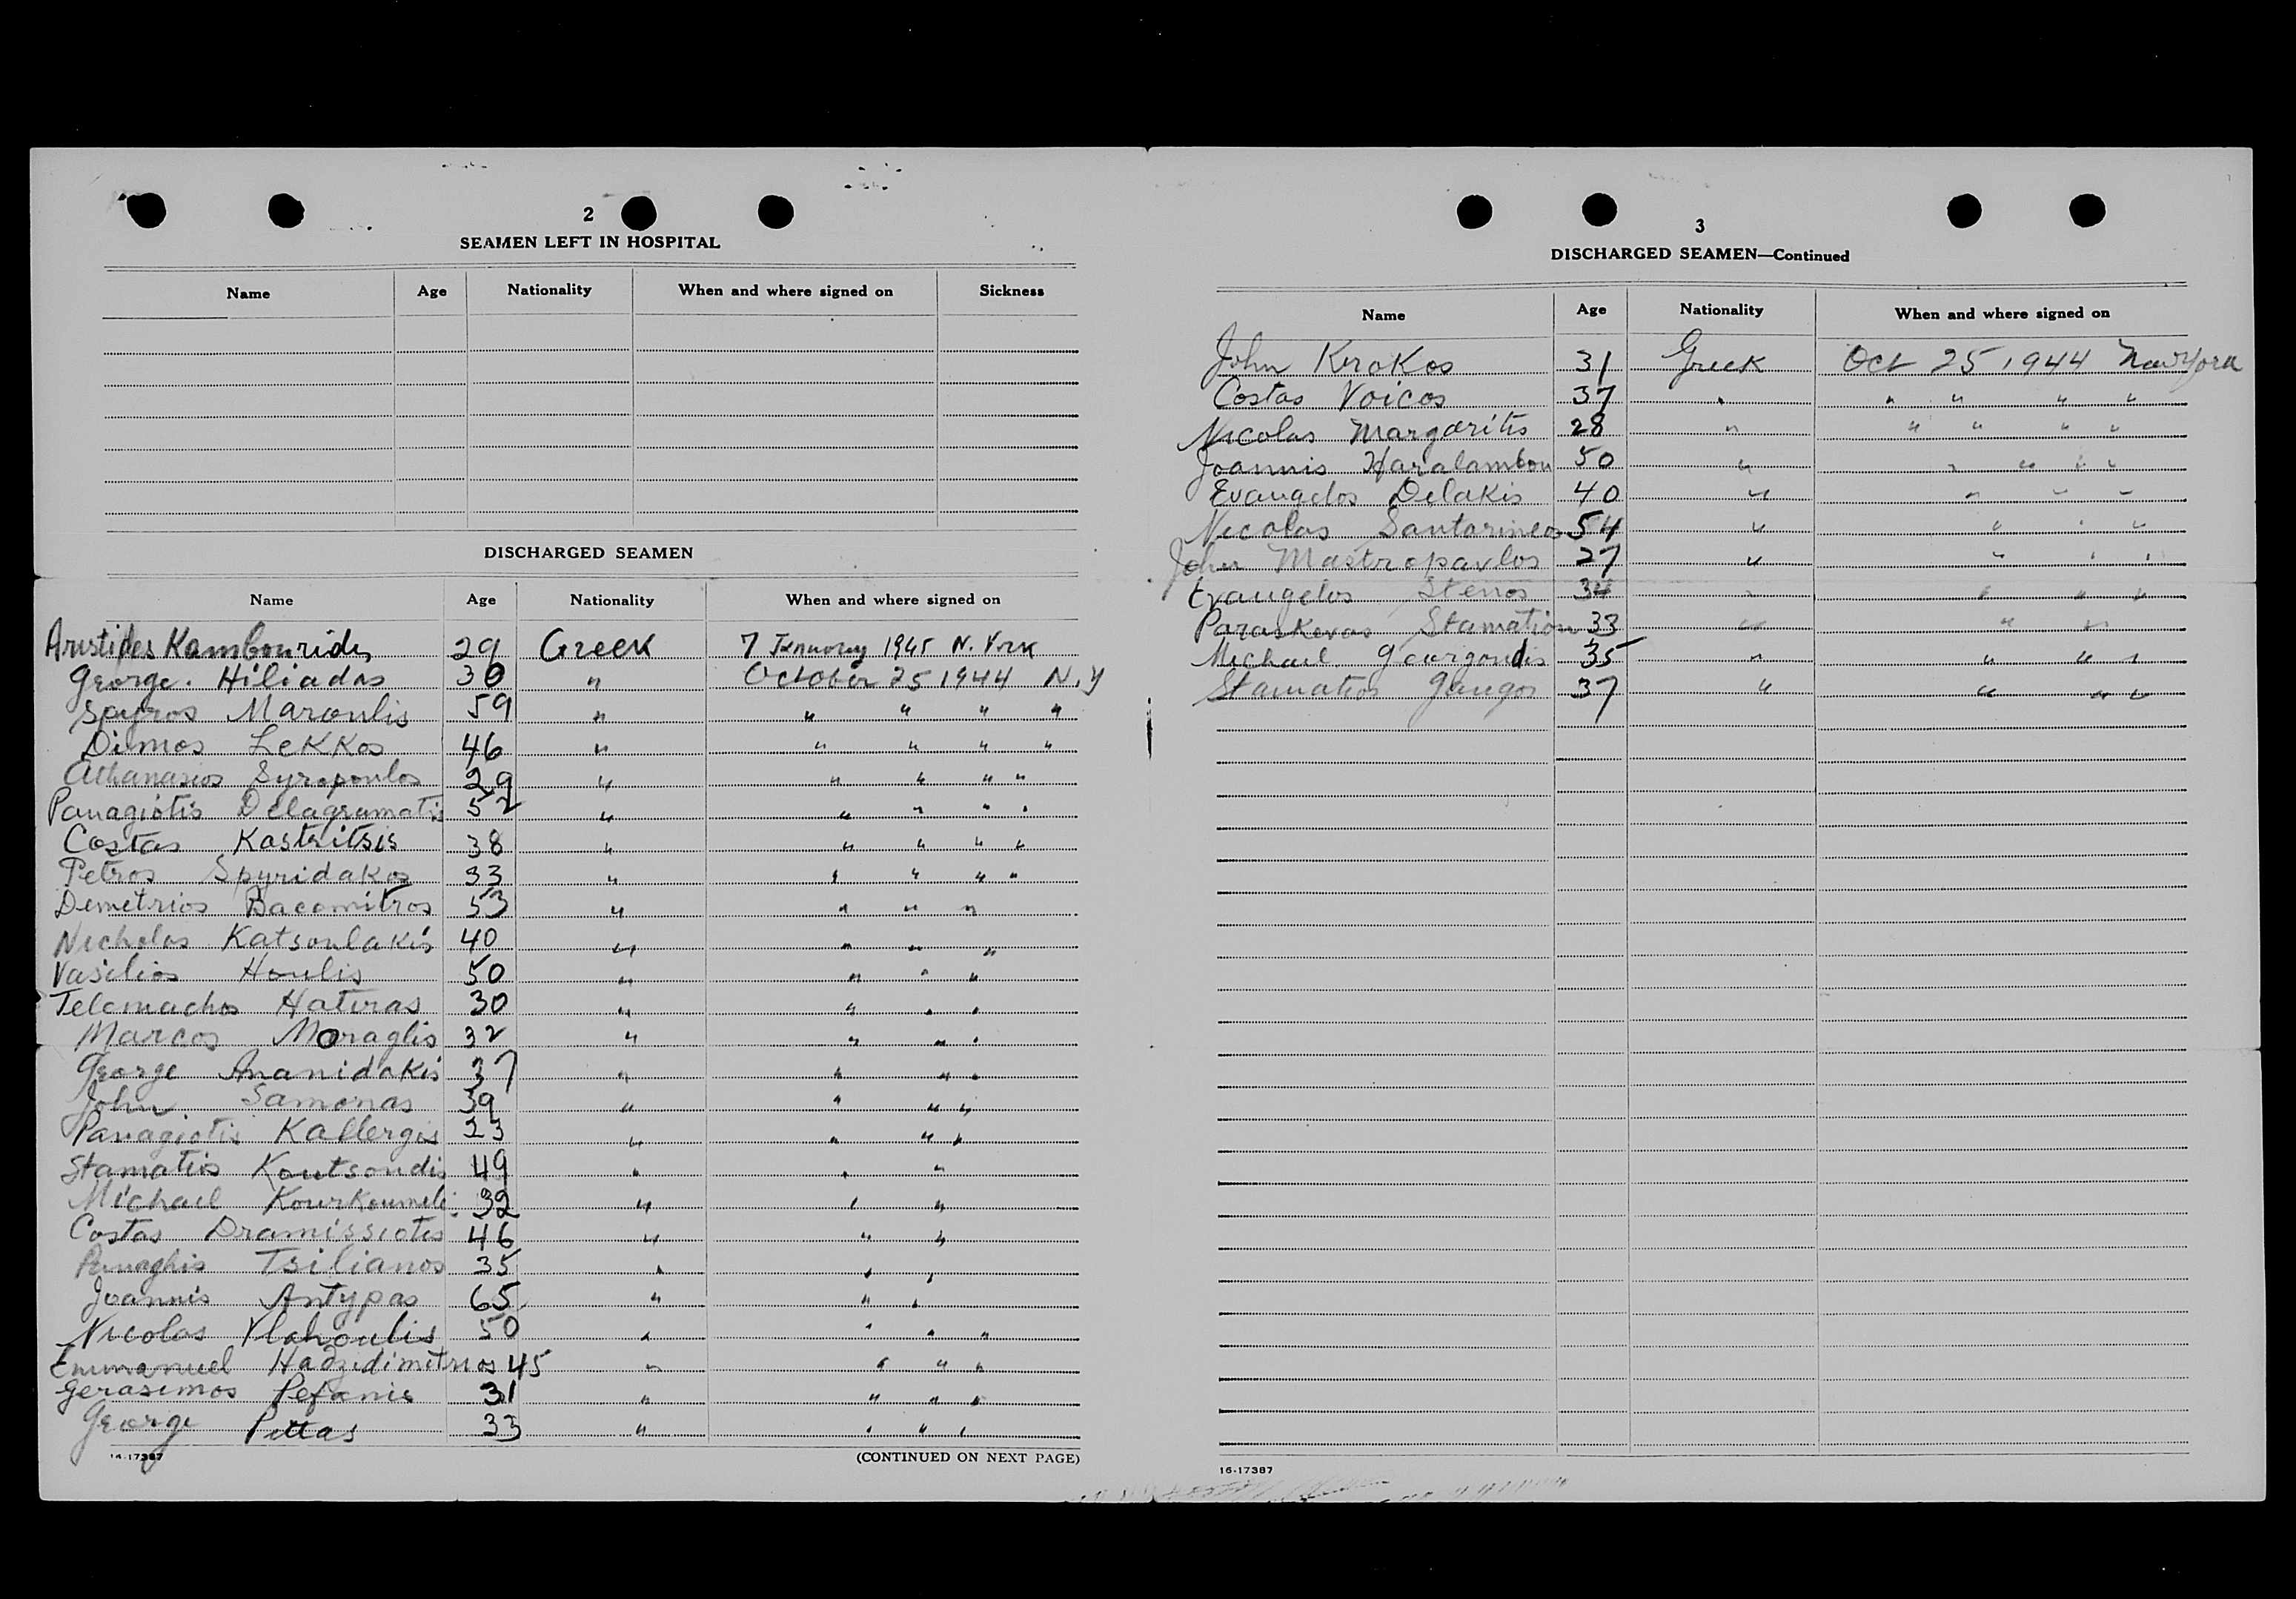 2
SEAMEN LEFT IN HOSPITAL
Name Age Nationality When and where signed on Sickness
DISCHARGED SEAMEN
Name Age Nationality When and where signed on
Aristides Kambourides 29 Greek 7 January 1945 N. York
George. Hiliadas 30 " October 25 1944 N.Y
Spyros Maroulis 59 " " " " "
Dimos Lekkos 46 " " " " "
Athanasios Syropoulos 29 " " " " "
Panagiotis Delagramatis 52 " " " " "
Costas Kastritsis 38 " " " " "
Petros Spyridakos 33 " " " " "
Demetrios Bacomitros 53 " " " "
Nicholas Katsoulakis 40 " " " "
Vasilios Houlis 50 " " " "
Telemachos Hatiras 30 " " " "
Marcos Moraglis 32 " " " "
George Ananidakis 37 " " " "
John Samonas 39 " " " "
Panagiotis Kallergis 23 " " " "
Stamatios Koutsoudis 49 " " "
Michael Kourkoumeli 32 " " "
Costas Dramissiotis 46 " " "
Panaghis Tsilianos 35 " " "
Joannis Antypas 65 " " "
Nicolas Vlahoulis 50 " " " "
Emmanuel Hadzidimitrios 45 " " " "
Gerasimos Pefanis 31 " " " "
George Pittas 33 " " " "
16-17387 (CONTINUED ON NEXT PAGE)
3
DISCHARGED SEAMEN—Continued
Name Age Nationality When and where signed on
John Krokos 31 Greek Oct 25 1944 New York
Costas Voicos 37 " " " " "
Nicolas Margaritis 28 " " " " "
Joannis Haralambou 50 " " " " "
Evangelos Delakis 40 " " " "
Nicolas Santorineos 54 " " " "
John Mastropavlos 27 " " " "
Evangelos Stenos 34 " " " "
Paraskevas Stamatiou 33 " " "
Michael Gourgoudis 35 " " " "
Stamatios Gangos 37 " " " "
16-17387